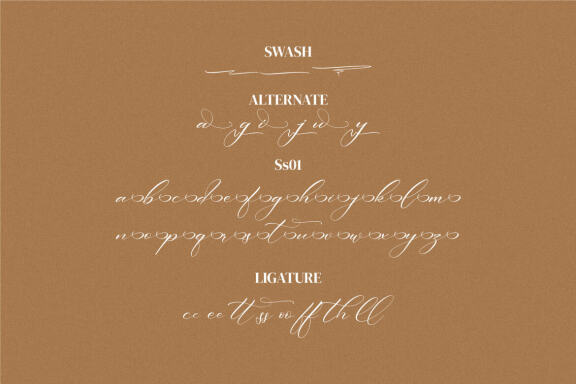 SWASH
ALTERNATE
a g i j w y
Ss01
a b c d e f g h i j k l m
n o p q r s t u v w x y z
LIGATURE
cc ee tt ss oo ff th ll